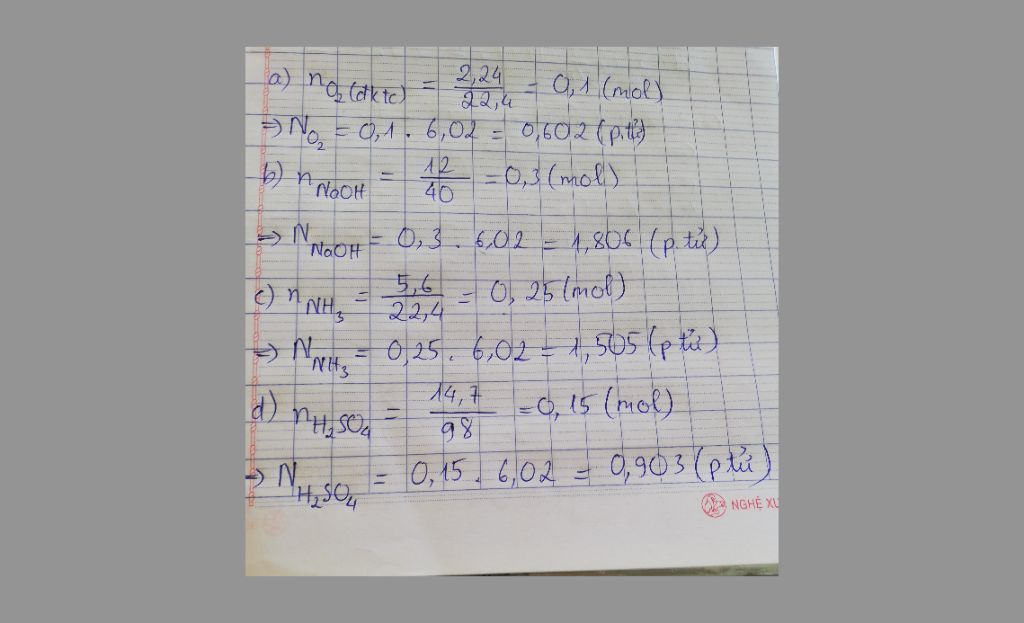 a) n O₂(đktc) = 2,24/22,4 = 0,1 (mol)
=> N O₂ = 0,1 . 6,02 = 0,602 (p.tử)
b) n NaOH = 12/40 = 0,3 (mol)
=> N NaOH = 0,3 . 6,02 = 1,806 (p.tử)
c) n NH₃ = 5,6/22,4 = 0,25 (mol)
=> N NH₃ = 0,25 . 6,02 = 1,505 (p tử)
d) n H₂SO₄ = 14,7/98 = 0,15 (mol)
=> N H₂SO₄ = 0,15 . 6,02 = 0,903 (p tử)
NGHỆ XU